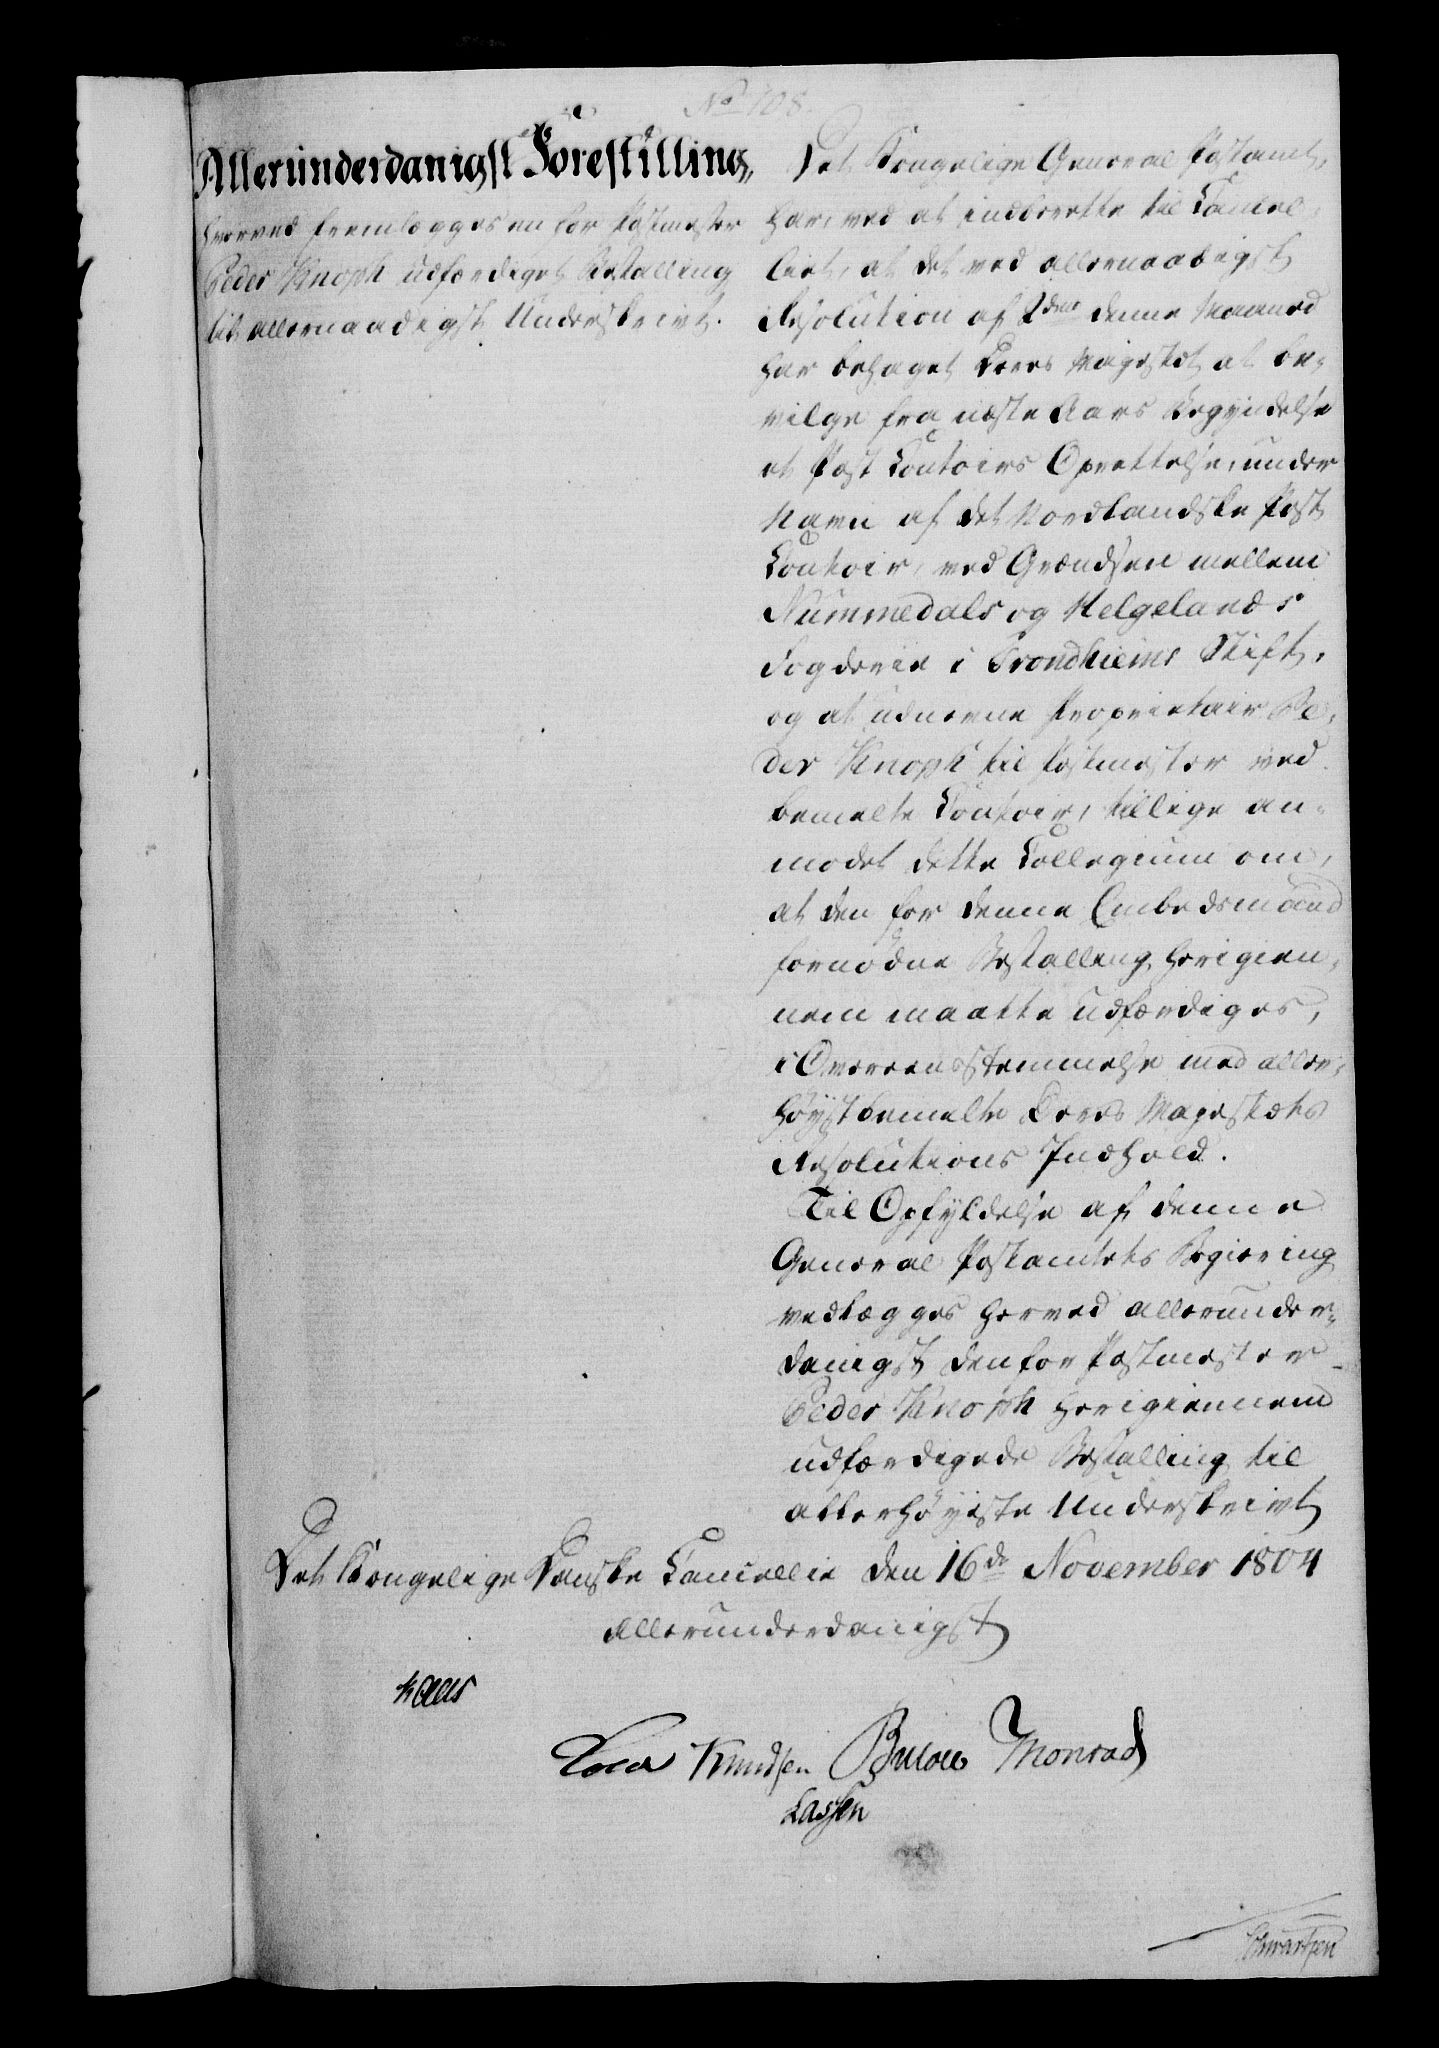 No 108.
Allerunderdanigst Forestilling,
hvorved fremlægges en for Postmester
Peder Knoph udfærdiget Bestalling
til allernaadigst Underskrivt.
Det Kongelige General Postamt,
har, ved at indberette til Cancel-
liet, at det ved allernaadigst
Resolution af 2den denne Maaned
har behaget Deres Majestæt at be-
vilge fra næste Aars Begyndelse
et Post Contoirs Oprettelse, under
Navn af det Nordlandske Post
Contoir, ved Grændsen mellem
Nummedals og Helgelands
Fogderie i Trondhiems Stift,
og at udnevne Proprietair Pe-
der Knoph til Postmester ved
bemelte Contoir, tillige an-
modet dette Collegium om,
at den for denne Embedsmand
fornødne Bestalling herigien-
nem maatte udfærdiges,
i Overeensstemmelse med aller-
høystbemelte Deres Majestæts
Resolutions Indhold.
Til Opfyldelse af denne
General Postamtets Begiering
vedlægges herved allerunder-
danigst den for Postmester
Peder Knoph herigiennem
udfærdigede Bestalling til
allerhøyeste Underskrivt
Det Kongelige Danske Cancellie den 16de November 1804
Allerunderdanigst
Kaas
Cold Knudsen Bülow Monrad
Lassen
Schwartzen